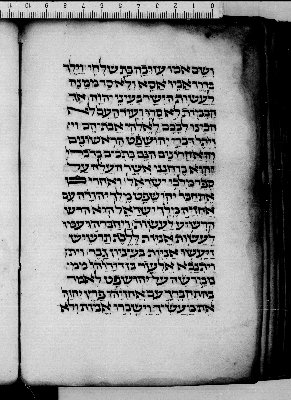 ושם אמו עזובה בת שלחי וילך
בדרך אביו אסא ולא סר ממנה
לעשות הישר בעיני יהוה אך
הבמות לא סרו ועוד העם לא
הכינו לבבם לאלהי אבתיהם
ויתר דברי יהושפט הראשנים
והאחרונים הנם כתובים בדברי
יהוא בן חנני אשר העלה על
ספר מלכי ישראל ואחרי כן
אתחבר יהושפט מלך יהודה עם
אחזיה מלך ישראל הוא
הרשיע לעשות ויחברהו עמו
לעשות אניות ללכת תרשיש
ויעשו אניות בעציון גבר
ויתנבא אליעזר בן דדוהו
ממרשה על יהושפט לאמר
כהתחברך עם אחזיהו פרץ יהוה
את מעשיך וישברו אניות ולא